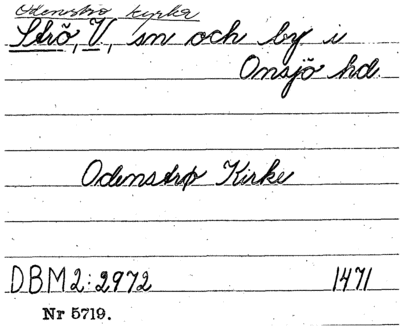 Odenströ kyrka
Strö, V., sn och by i
Onsjö hd.
Odenstrø Kirke
DBM2:2972 1471
Nr 5719.